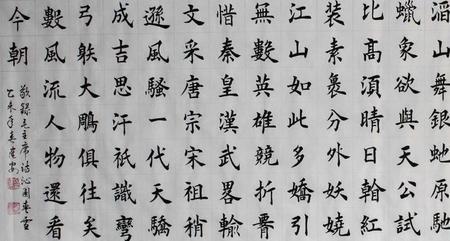 滔山舞銀虵原馳
蠟象欲與天公試
比高湏晴日翰紅
裝素裹分外妖嬈
江山如此多嬌引
無數英雄競折
惜秦皇漢武畧輸
文采唐宗宋祖稍
遜風騷一代天驕
成吉思汗祇識彎
弓䠶大鵰俱往矣
數風流人物還看
今朝
敬錄毛主席詩沁園春雪
乙未年春